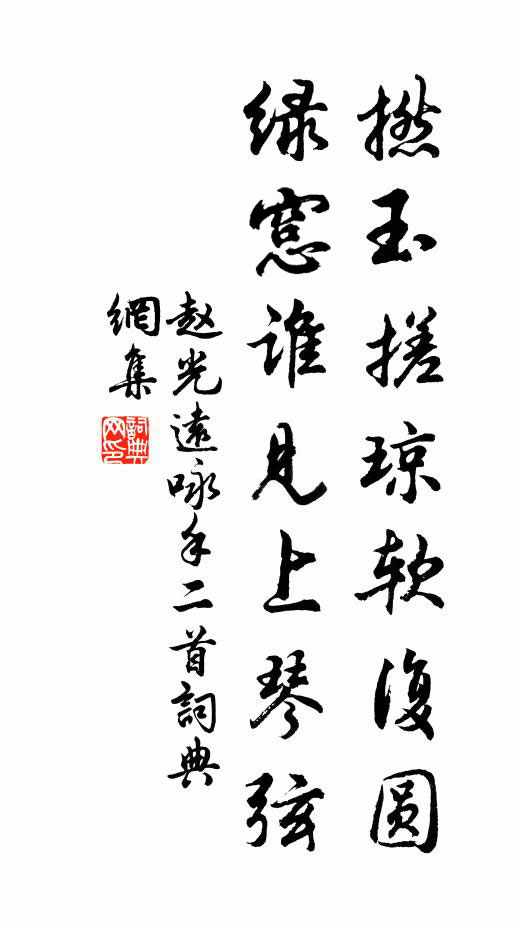 撚玉搓琼软復圆
绿窓谁见上琴弦
赵光遠咏手二首詞典
網集
詞典
网印